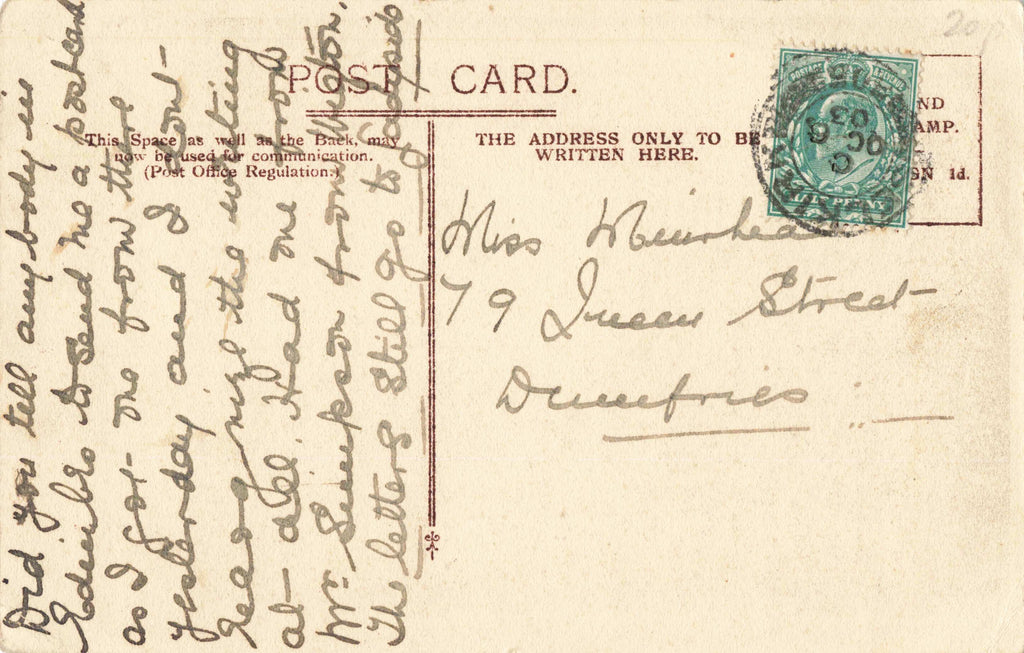 20p
POST CARD.
This Space as well as the Back, may
now be used for communication.
(Post Office Regulation.)
THE ADDRESS ONLY TO BE
WRITTEN HERE.
ND
AMP.
SN 1d.
POSTAGE
Miss Muirhead
79 Queen Street
Dumfries
Did you tell any body in
Edinbro to send me a postcard
as I got one from there
yesterday and I cont
read nize the writing
at all. Had one from
Mr. Simpson from
The letters still go to